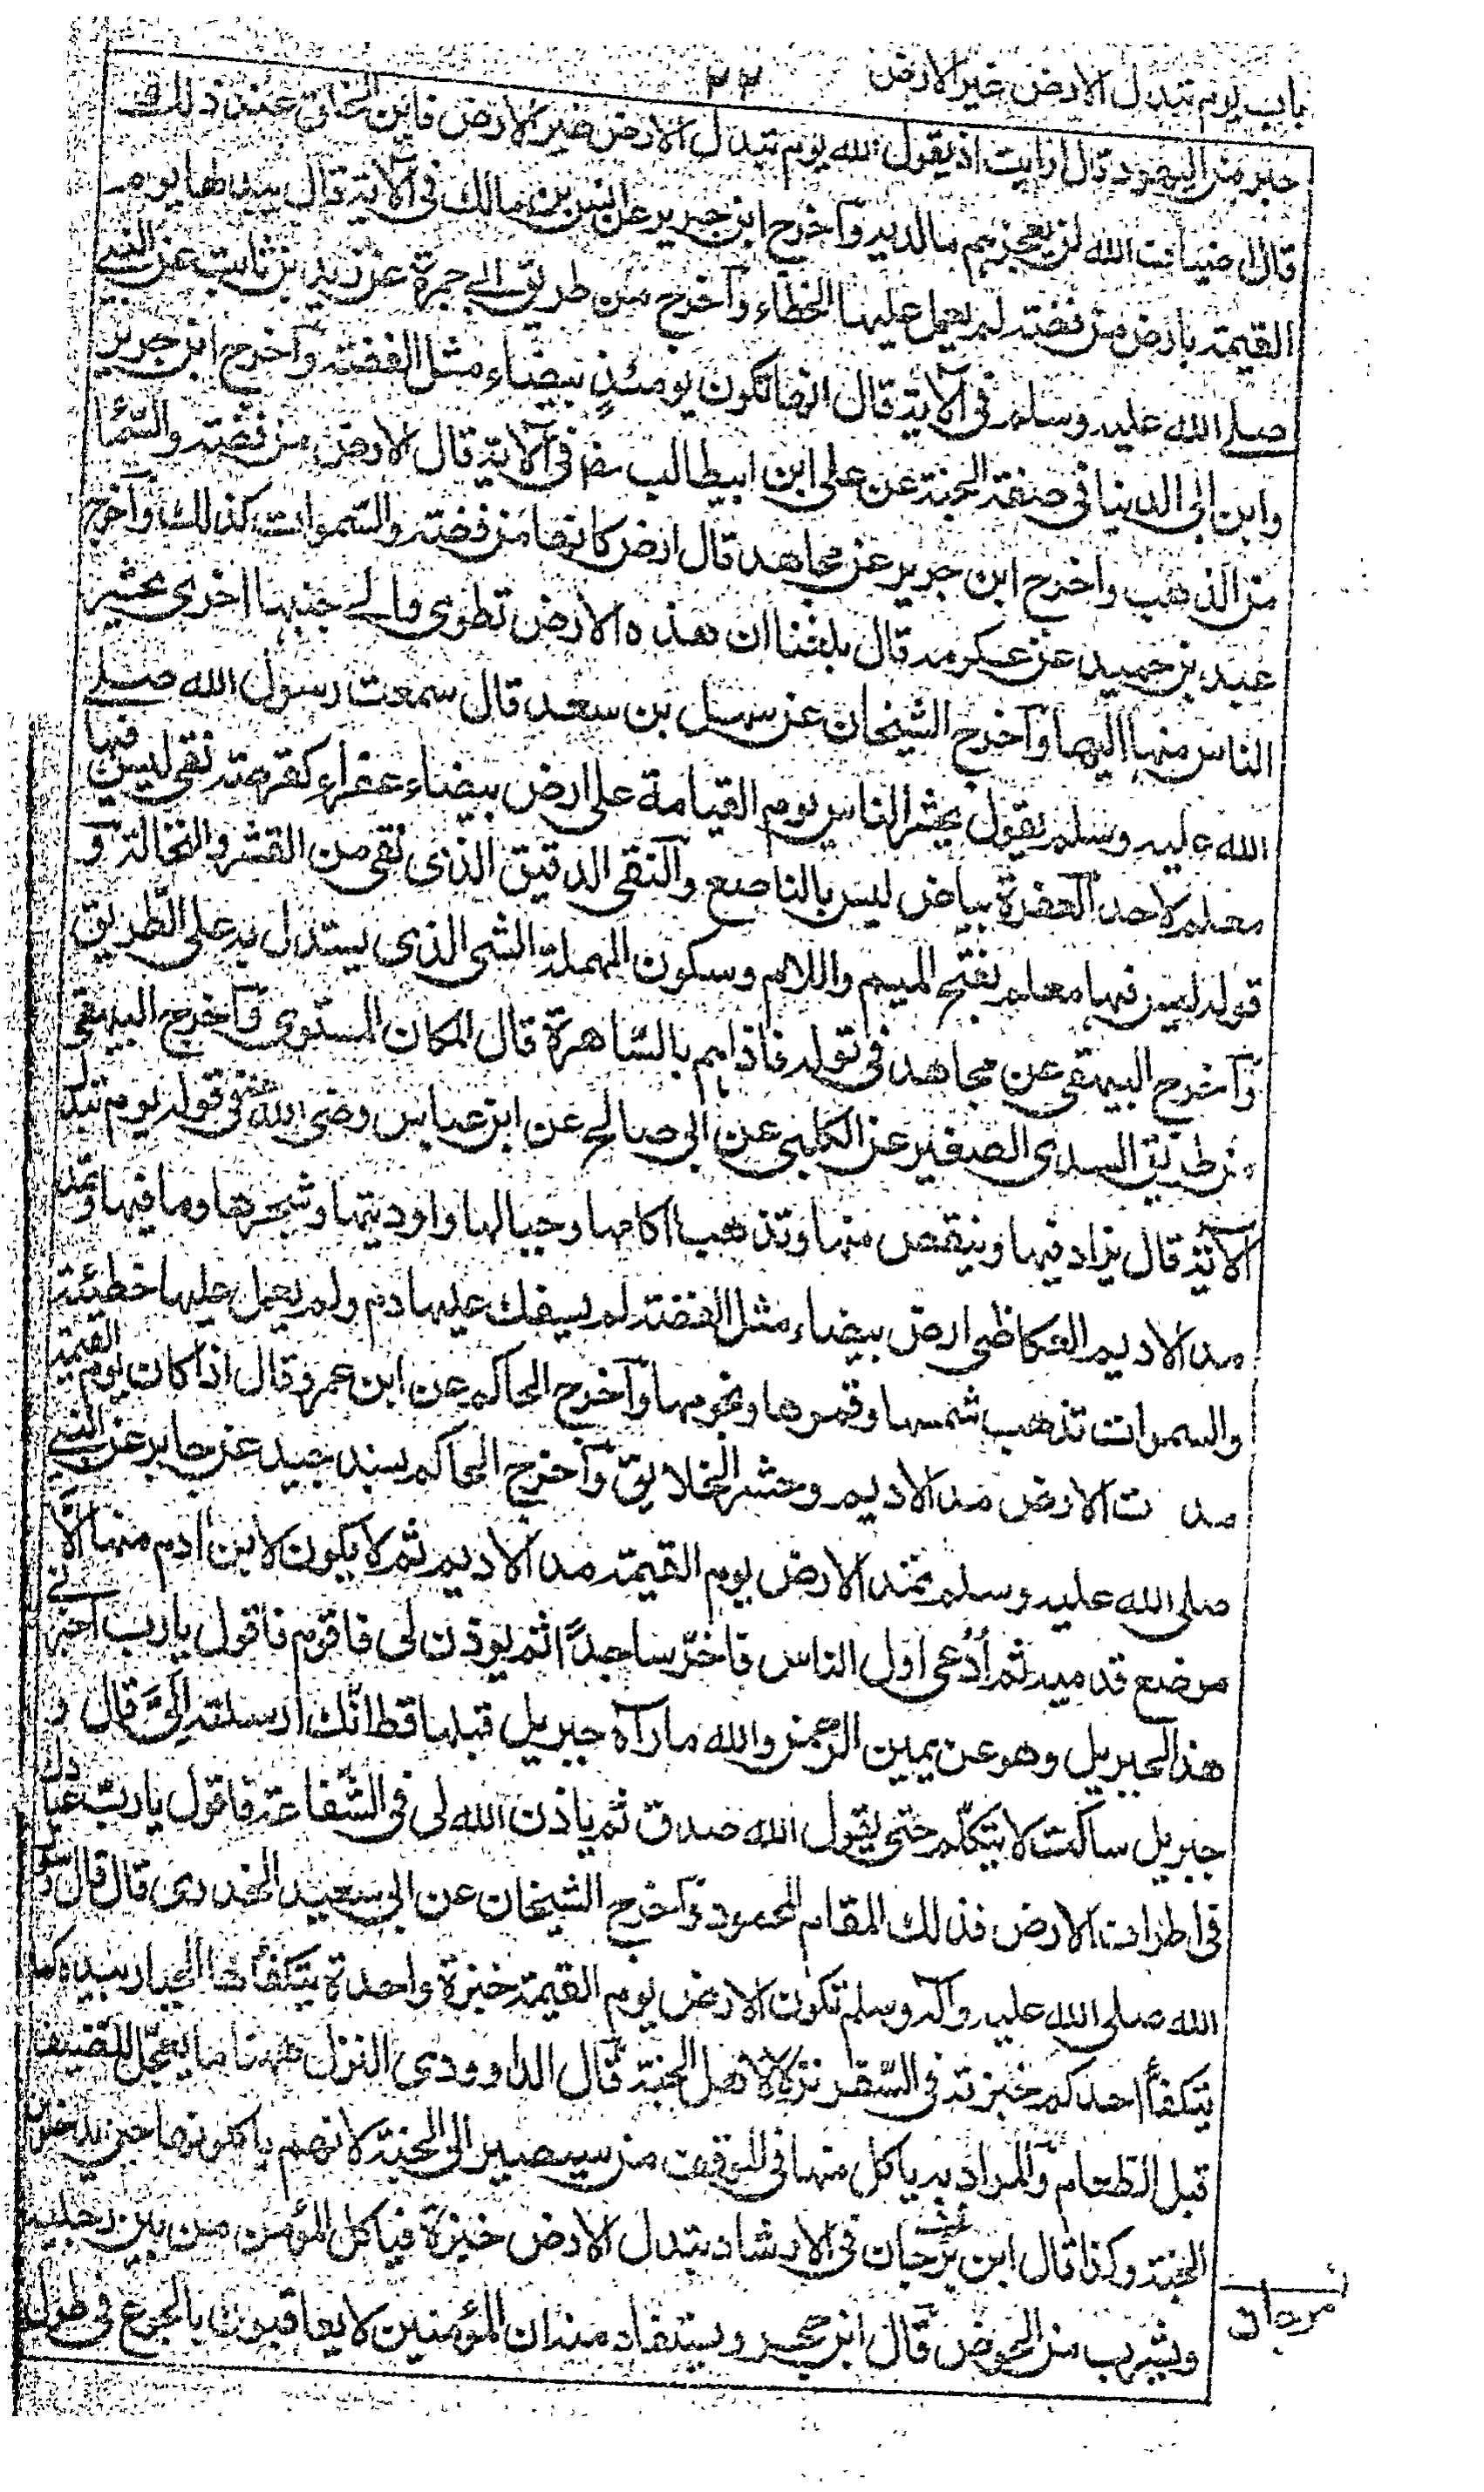 باب يوم تبدل الارض غير الارض ٢٢
حبر من اليهود قال ارايت اذ يقول الله يوم تبدل الارض غير الارض فاين الخلق عند ذلك
قال اضياف الله لن يعجزهم ما لديه وآخرج ابن جرير عن انس بن مالك فى الآية قال يبدلها يوم
القيمة بارض من فضة لم يعمل عليها الخطاء وآخرج من طريق ابي حمزة عن زيد بن ثابت عن النبي
صلى الله عليه وسلم فى الآية قال انها تكون يومئذ بيضاء مثل الفضة وآخرج ابن جرير
وابن ابى الدنيا فى صفة الجنة عن على ابن ابيطالب رض فى الآية قال الارض من فضة والسما
من الذهب واخرج ابن جرير عن مجاهد قال ارض كانها من فضة والسموات كذلك وآخرج
عبد بن حميد عن عكرمة قال بلغنا ان هذه الارض تطوى والى جنبها اخرى يحشر
الناس منها اليها وآخرج الشيخان عن سهل بن سعد قال سمعت رسول الله صلى
الله عليه وسلم يقول يحشر الناس يوم القيامة على ارض بيضاء عفراء كقرصة نقى ليس فيها
معلم لاحد العفرة بياض ليس بالناصع وآلنقى الدقيق الذى نقى من القشر والنخالة و
قوله ليس فيها معلم بفتح الميم واللام وسكون المهملة الشى الذى يستدل به على الطريق
وآخرج البيهقى عن مجاهد فى قوله فاذا هم بالساهرة قال المكان المستوى وآخرج البيهقى
من طريق السدى الصغير عن الكلبى عن ابى صالح عن ابن عباس رضى الله عنه فى قوله يوم تبدل
الآية قال يزاد فيها وينقص منها وتذهب اكامها وجبالها واوديتها وشجرها وما فيها وتمد
مد الاديم العكاظى ارض بيضاء مثل الفضة لم يسفك عليها دم ولم يعمل عليها خطيئة
والسموات تذهب شمسها وقمرها ونجومها وآخرج الحاكم عن ابن عمرو قال اذا كان يوم القيمة
مدت الارض مد الاديم وحشر الخلايق وآخرج الحاكم بسند جيد عن جابر عن النبي
صلى الله عليه وسلم تمد الارض يوم القيمة مد الاديم ثم لا يكون لابن آدم منها الا
موضع قدميه ثم أدعى اول الناس فاخر ساجدًا ثم يوذن لى فاقوم فاقول يا رب اخبرنى
هذا الجبريل وهو عن يمين الرحمن والله ما رآه جبريل قبلها قط انك ارسلته الىّ قال و
جبريل ساكت لا يتكلم حتى يقول الله صدق ثم ياذن الله لى فى الشفاعة فاقول يا رب عبادك
فى اطراف الارض فذلك المقام المحمود وآخرج الشيخان عن ابى سعيد الخدرى قال قال رسول
الله صلى الله عليه وآله وسلم تكون الارض يوم القيمة خبزة واحدة يتكفأها الجبار بيده كما
يتكفأ احدكم خبزته فى السفر نزلا لاهل الجنة قال الداوودى النزل ههنا ما يعجل للضيف
قبل الطعام والمراد به ياكل منها فى الموقف من سيصير الى الجنة لا انهم ياكلونها حين يدخلون
الجنة وكذا قال ابن برجان فى الارشاد تبدل الارض خبزة فياكل المؤمن من بين رجليه
ويشرب من الحوض قال ابن حجر ويستفاد منه ان المؤمنين لا يعاقبون بالجوع فى طول